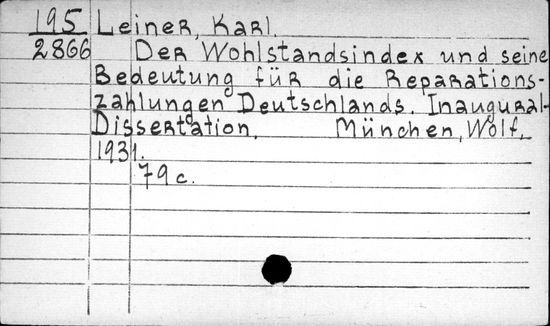 195 Leiner, Karl.
2866 Der Wohlstandsindex und seine
Bedeutung für die Reparations-
zahlungen Deutschlands. Inaugural-
Dissertation. München, Wolf,
1931.
79 c.